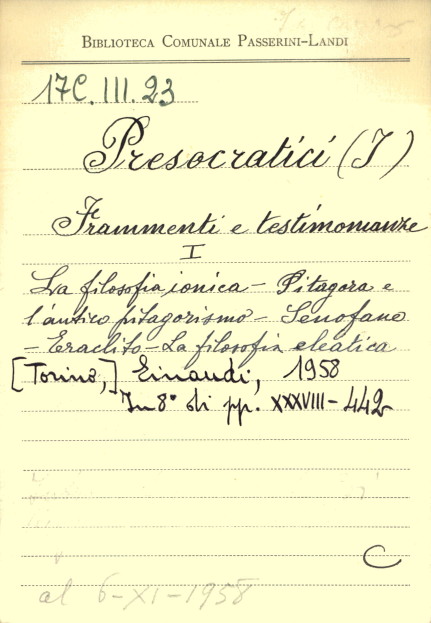 BIBLIOTECA COMUNALE PASSERINI-LANDI
17C. III. 23
Presocratici (I)
Frammenti e testimonianze
I
La filosofia ionica - Pitagora e
l'antico pitagorismo - Senofane
- Eraclito - La filosofia eleatica
[Torino,] Einaudi, 1958
In 8° di pp. XXXVIII - 442
C
al 6-XI-1958